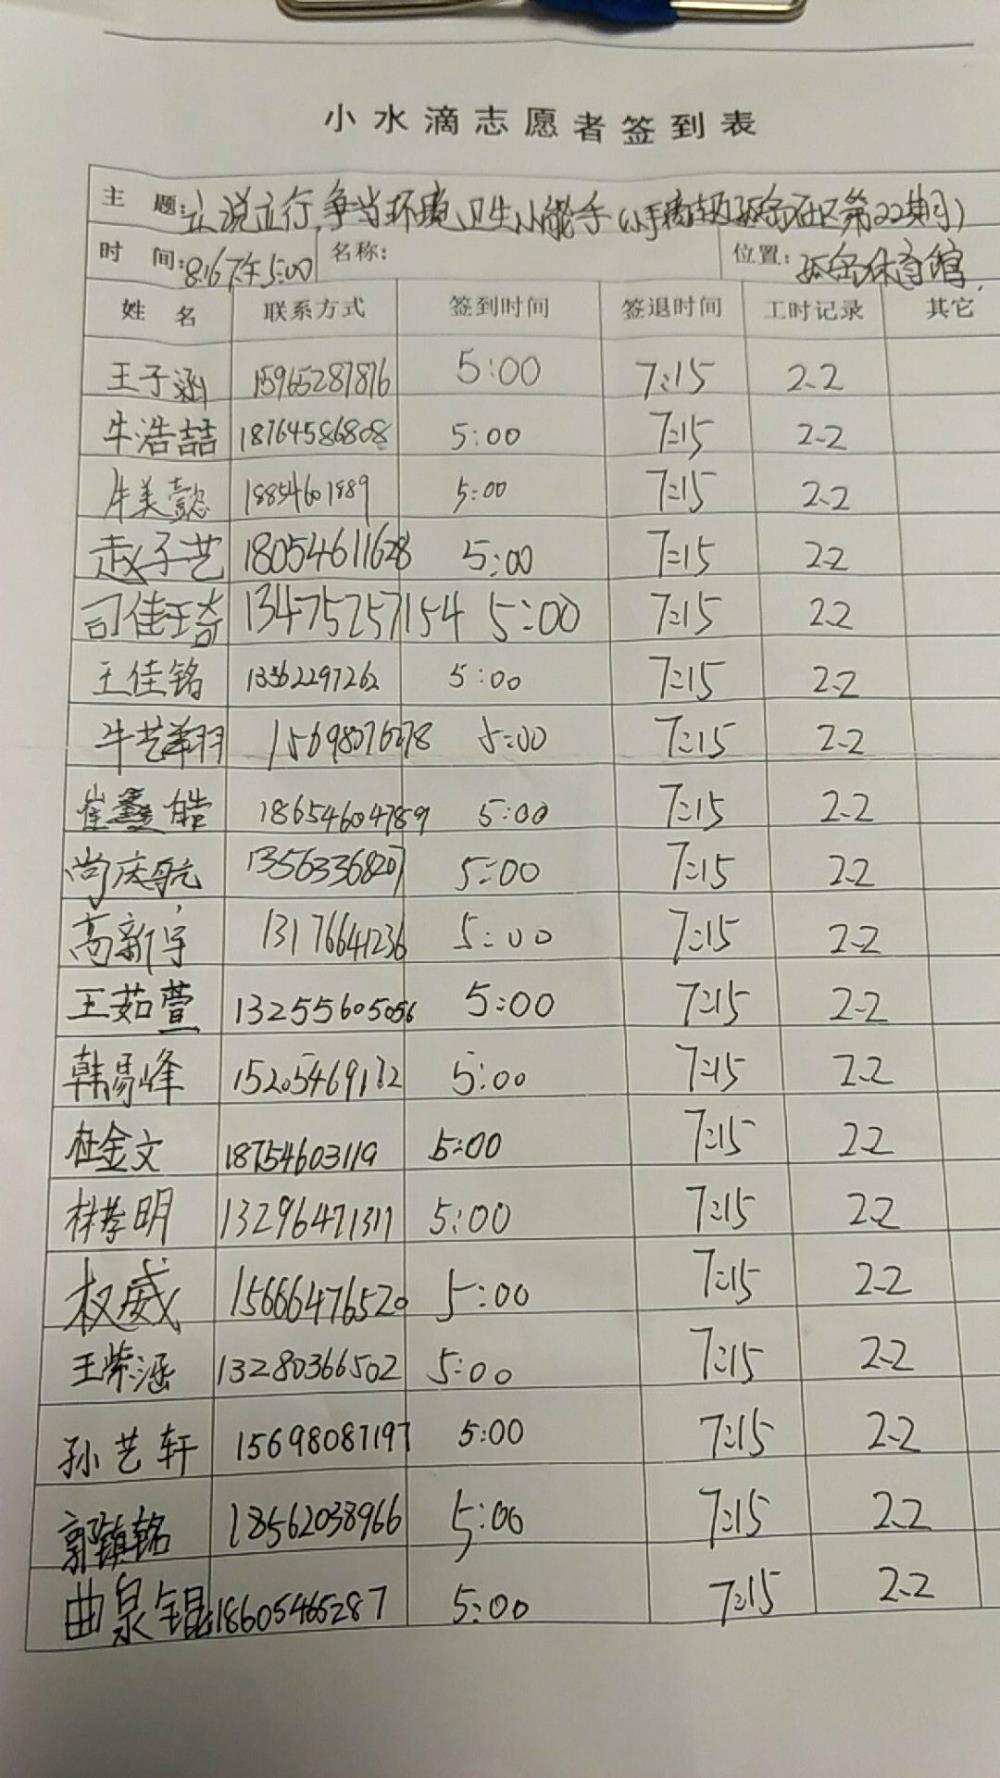 小水滴志愿者签到表
主 题: 立说立行,争当环境卫生小能手(小手 孤岛社区第22期)
时 间: 8.16下午5:00 名称: 位置: 孤岛体育馆
姓 名 联系方式 签到时间 签退时间 工时记录 其它
王子涵 15965287876 5:00 7:15 2.2
牛浩喆 18764586808 5:00 7:15 2.2
牛美懿 18854601889 5:00 7:15 2.2
赵子艺 18054611628 5:00 7:15 2.2
司佳琦 13475257154 5:00 7:15 2.2
王佳铭 13562297262 5:00 7:15 2.2
牛艺翔 15698076078 5:00 7:15 2.2
崔鑫皓 18654604789 5:00 7:15 2.2
尚庆航 13563368207 5:00 7:15 2.2
高新宇 13176641236 5:00 7:15 2.2
王茹萱 13255605056 5:00 7:15 2.2
韩易峰 15205469132 5:00 7:15 2.2
杜金文 18754603119 5:00 7:15 2.2
林孝明 13296471311 5:00 7:15 2.2
权威 15666476520 5:00 7:15 2.2
王紫涵 13280366502 5:00 7:15 2.2
孙艺轩 15698087197 5:00 7:15 2.2
郭镇铭 18562038966 5:00 7:15 2.2
曲泉锟 18605465287 5:00 7:15 2.2